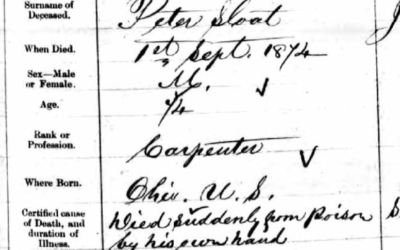 Surname of
Deceased.
Peter Sloat
When Died.
1st Sept. 1874
Sex—Male
or Female.
M.
Age.
74
Rank or
Profession.
Carpenter
Where Born.
Ohio. U. S.
Certified cause
of Death, and
duration of
Illness.
Died suddenly from poison
by his own hand